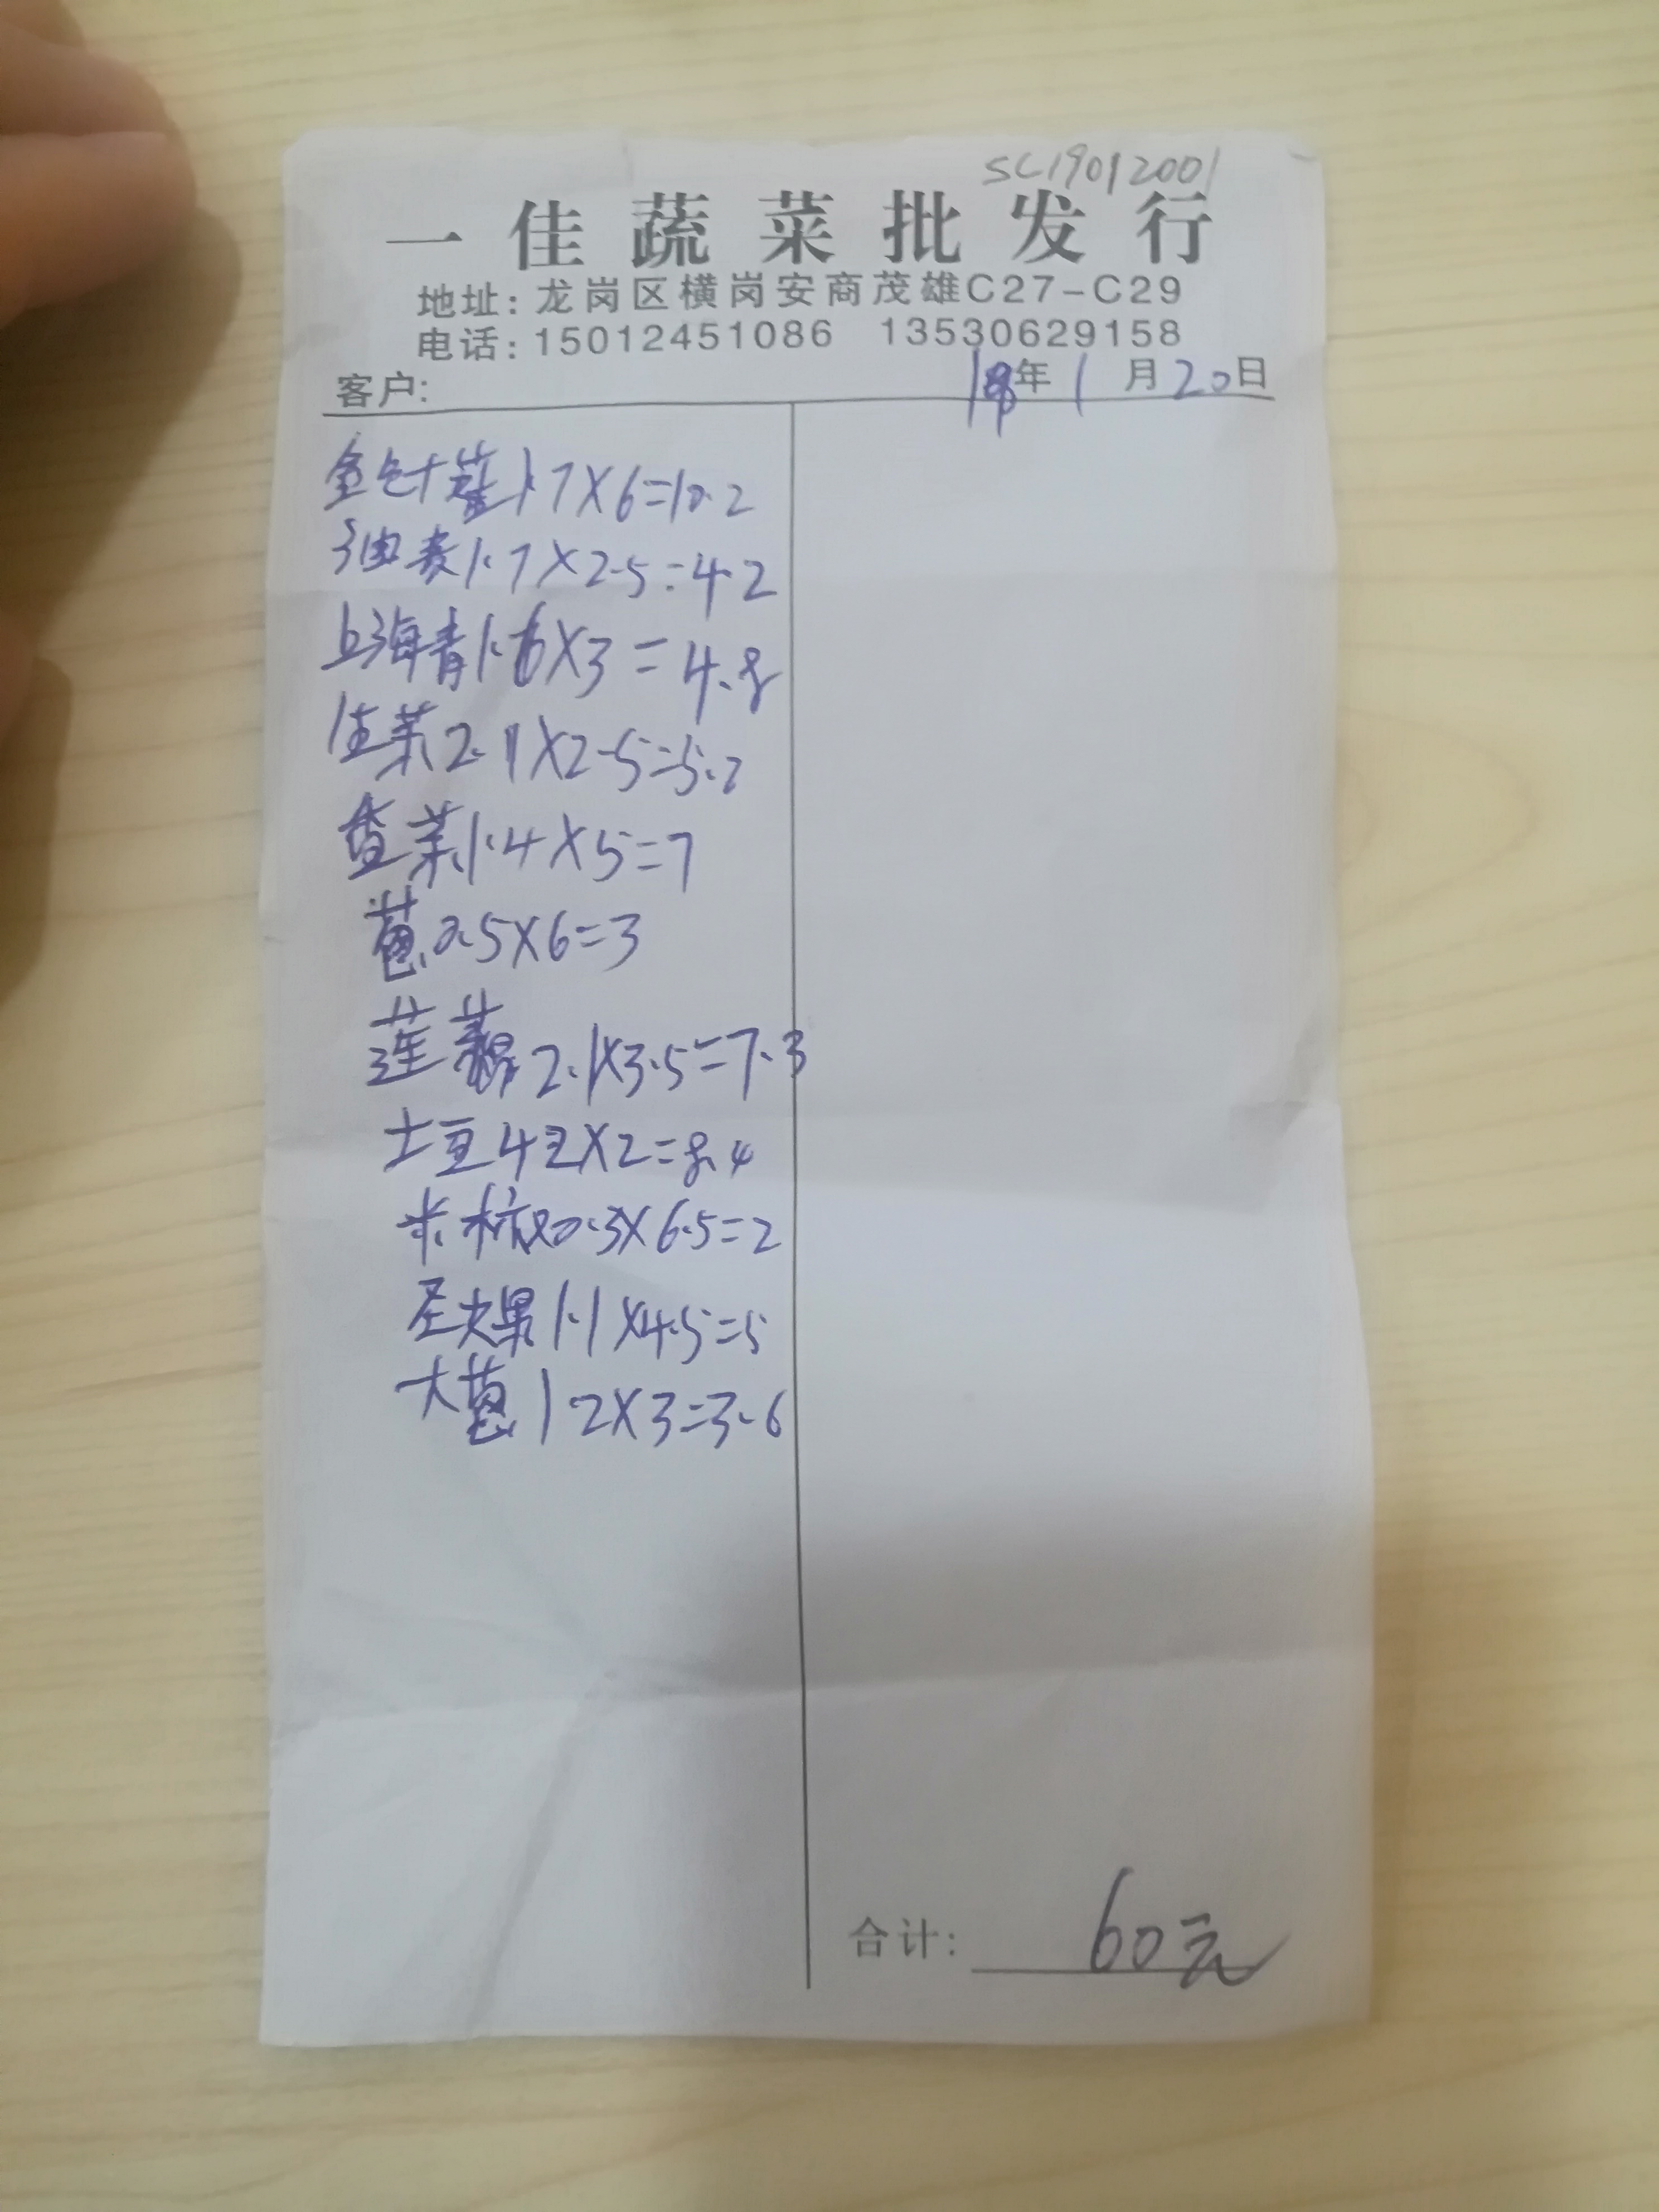 SC19012001
一佳蔬菜批发行
地址:龙岗区横岗安商茂雄C27-C29
电话:15012451086 13530629158
客户: 19年1月20日
金针菇1.7X6=10.2
油麦1.7X2.5=4.2
上海青1.6X3=4.8
生菜2.1X2.5=5.2
香菜1.4X5=7
葱0.5X6=3
莲藕2.1X3.5=7.3
土豆4.2X2=8.4
米椒0.3X6.5=2
圣女果1.1X4.5=5
大葱1.2X3=3.6
合计: 60元